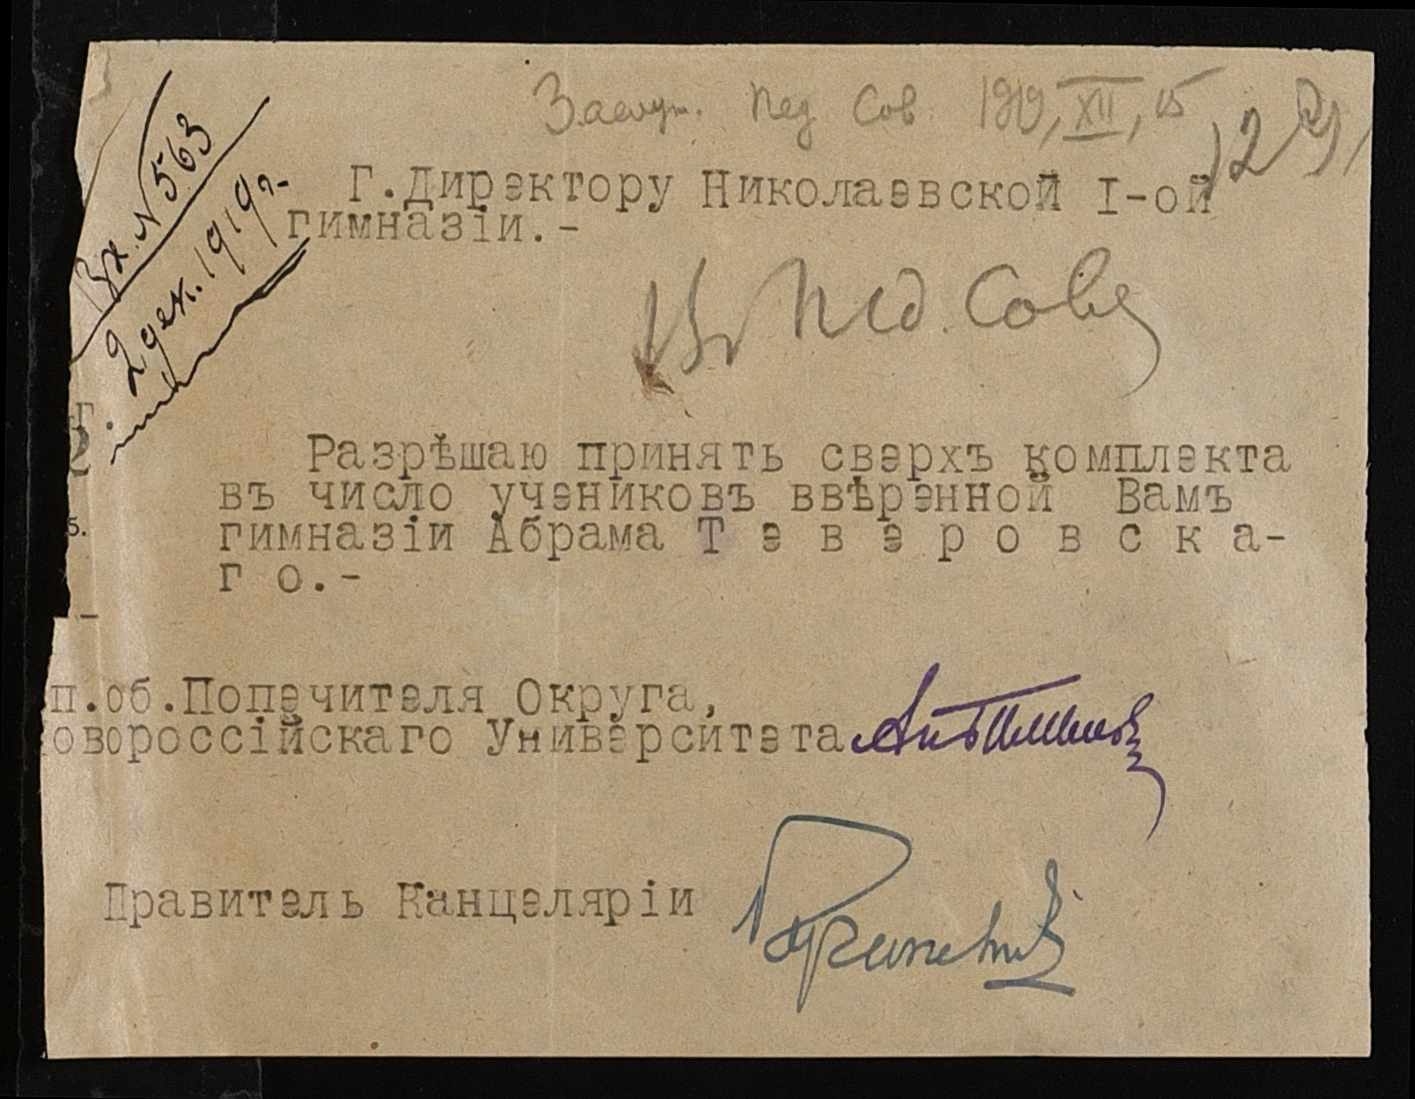 Заслуш. Пед Сов 1919, XII, 15
Вх. N 563
2 дек. 1919 г.
Г.Директору Николаевской I-ой
гимназіи.-
В Пед. Совѣ
Г.
Разрѣшаю принять сверхъ комплекта
въ число учениковъ ввѣренной Вамъ
5.
гимназіи Абрама Т е в е р о в с к а-
г о.-
-
п.об.Попечителя Округа,
овороссійскаго Университета
Правитель Канцеляріи